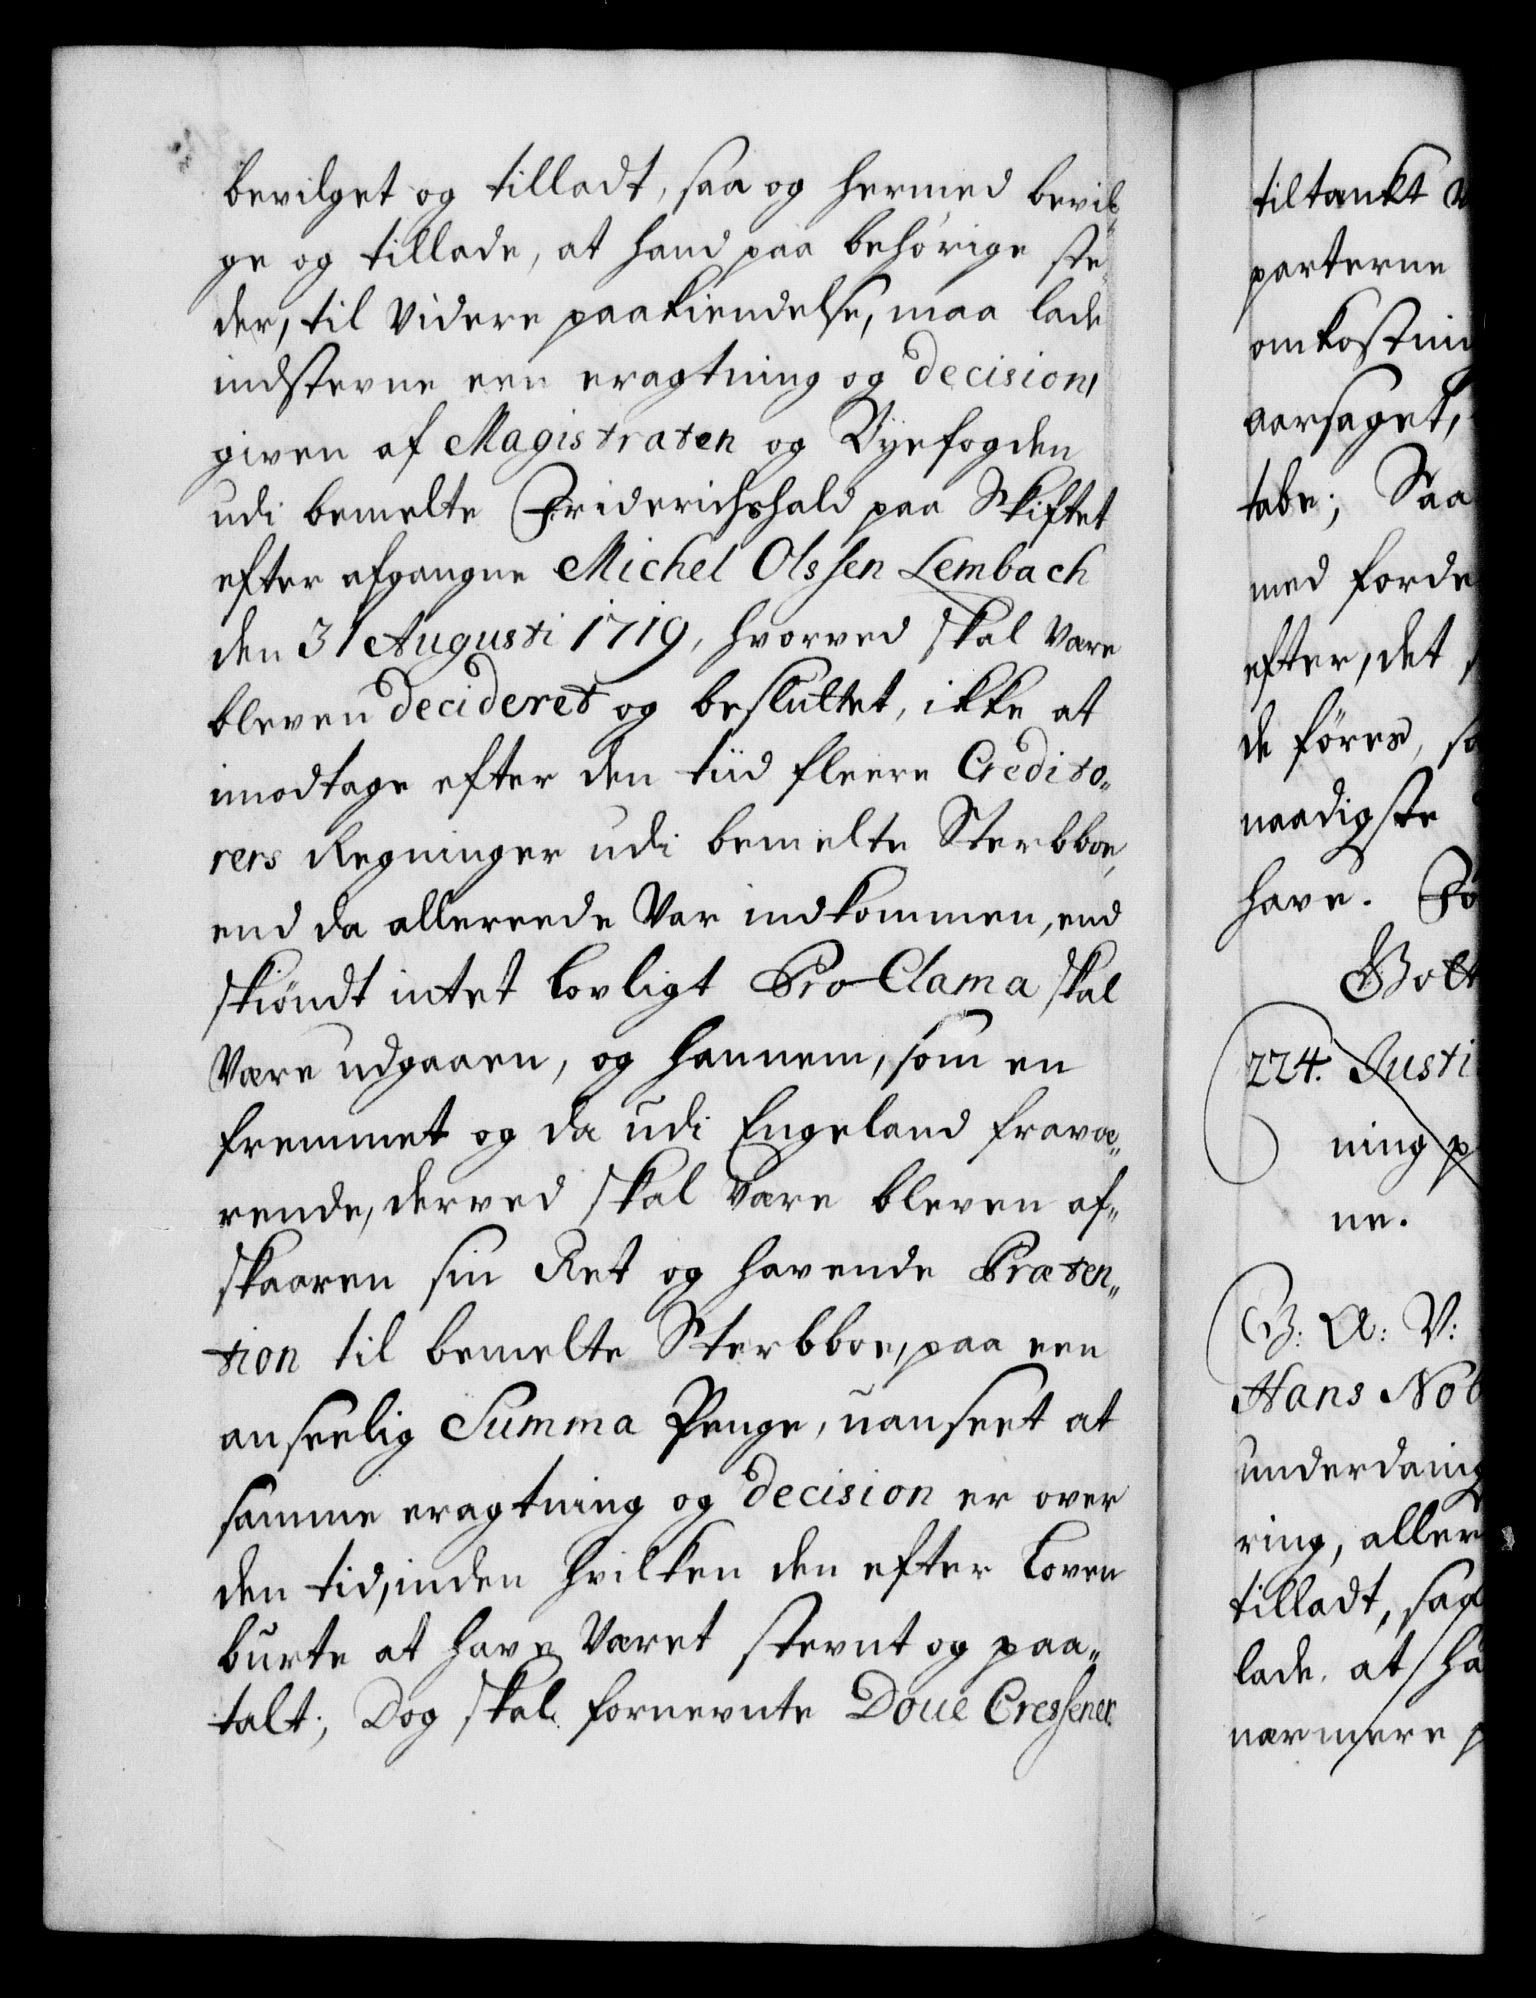 bevilget og tilladt, saa og hermed bevil-
ge og tillade, at hand paa behörige ste-
der, til videre paakiendelse, maa lade
indstevne een eragtning og Decision,
given af Magistraten og Byefogden
udi bemelte Friderichshald paa Skiftet
efter afgangne Michel Olssen Lembach
den 31 Augusti 1719, hvorved skal være
bleven Decideret og besluttet, ikke at
imodtage efter den tiid fleere Credito-
rers Regninger udi bemelte Sterbboe,
end da allereede var indkommen, end
skiöndt intet lovligt Pro Clama skal
være udgaaen, og hannem, som en
fremmet og da udi Engeland fravæ-
rende, derved skal være bleven af-
skaaren sin Ret og havende Præten-
tion til bemelte Sterbboe, paa een
anseelig Summa Penge, uanseet at
samme eragtning og Decision er over
den tid, inden hvilken den efter Loven
burte at have været stevnt og paa-
talt; Dog skal fornevnte Doue Cressener
tiltænkt
parterne
omkostning
aarsaget,
tabe; Saa
med forde
efter, det
de föres, so
naadigste
have.
Bolt
224. Justi
ning p
ne.
G: A: V:
Hans Nob
underdanig
ring, aller
tilladt, saa
lade, at ha
nærmere p